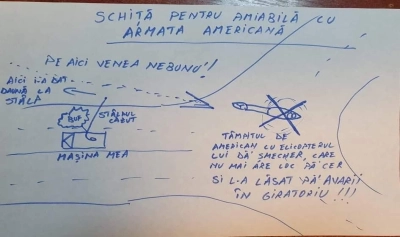 SCHIȚĂ PENTRU AMIABILĂ CU
ARMATA AMERICANĂ
PE AICI VENEA NEBUNU'!
AICI I-A DAT
DAUNĂ LA
STÂLP
STÂLPUL
CĂZUT
BUF
MAȘINA MEA
TÂMPITUL DE
AMERICAN CU ELICOPTERUL
LUI DĂ ȘMECHER, CARE
NU MAI ARE LOC PĂ CER
SI L-A LĂSAT PĂ AVARII
ÎN GIRATORIU !!!